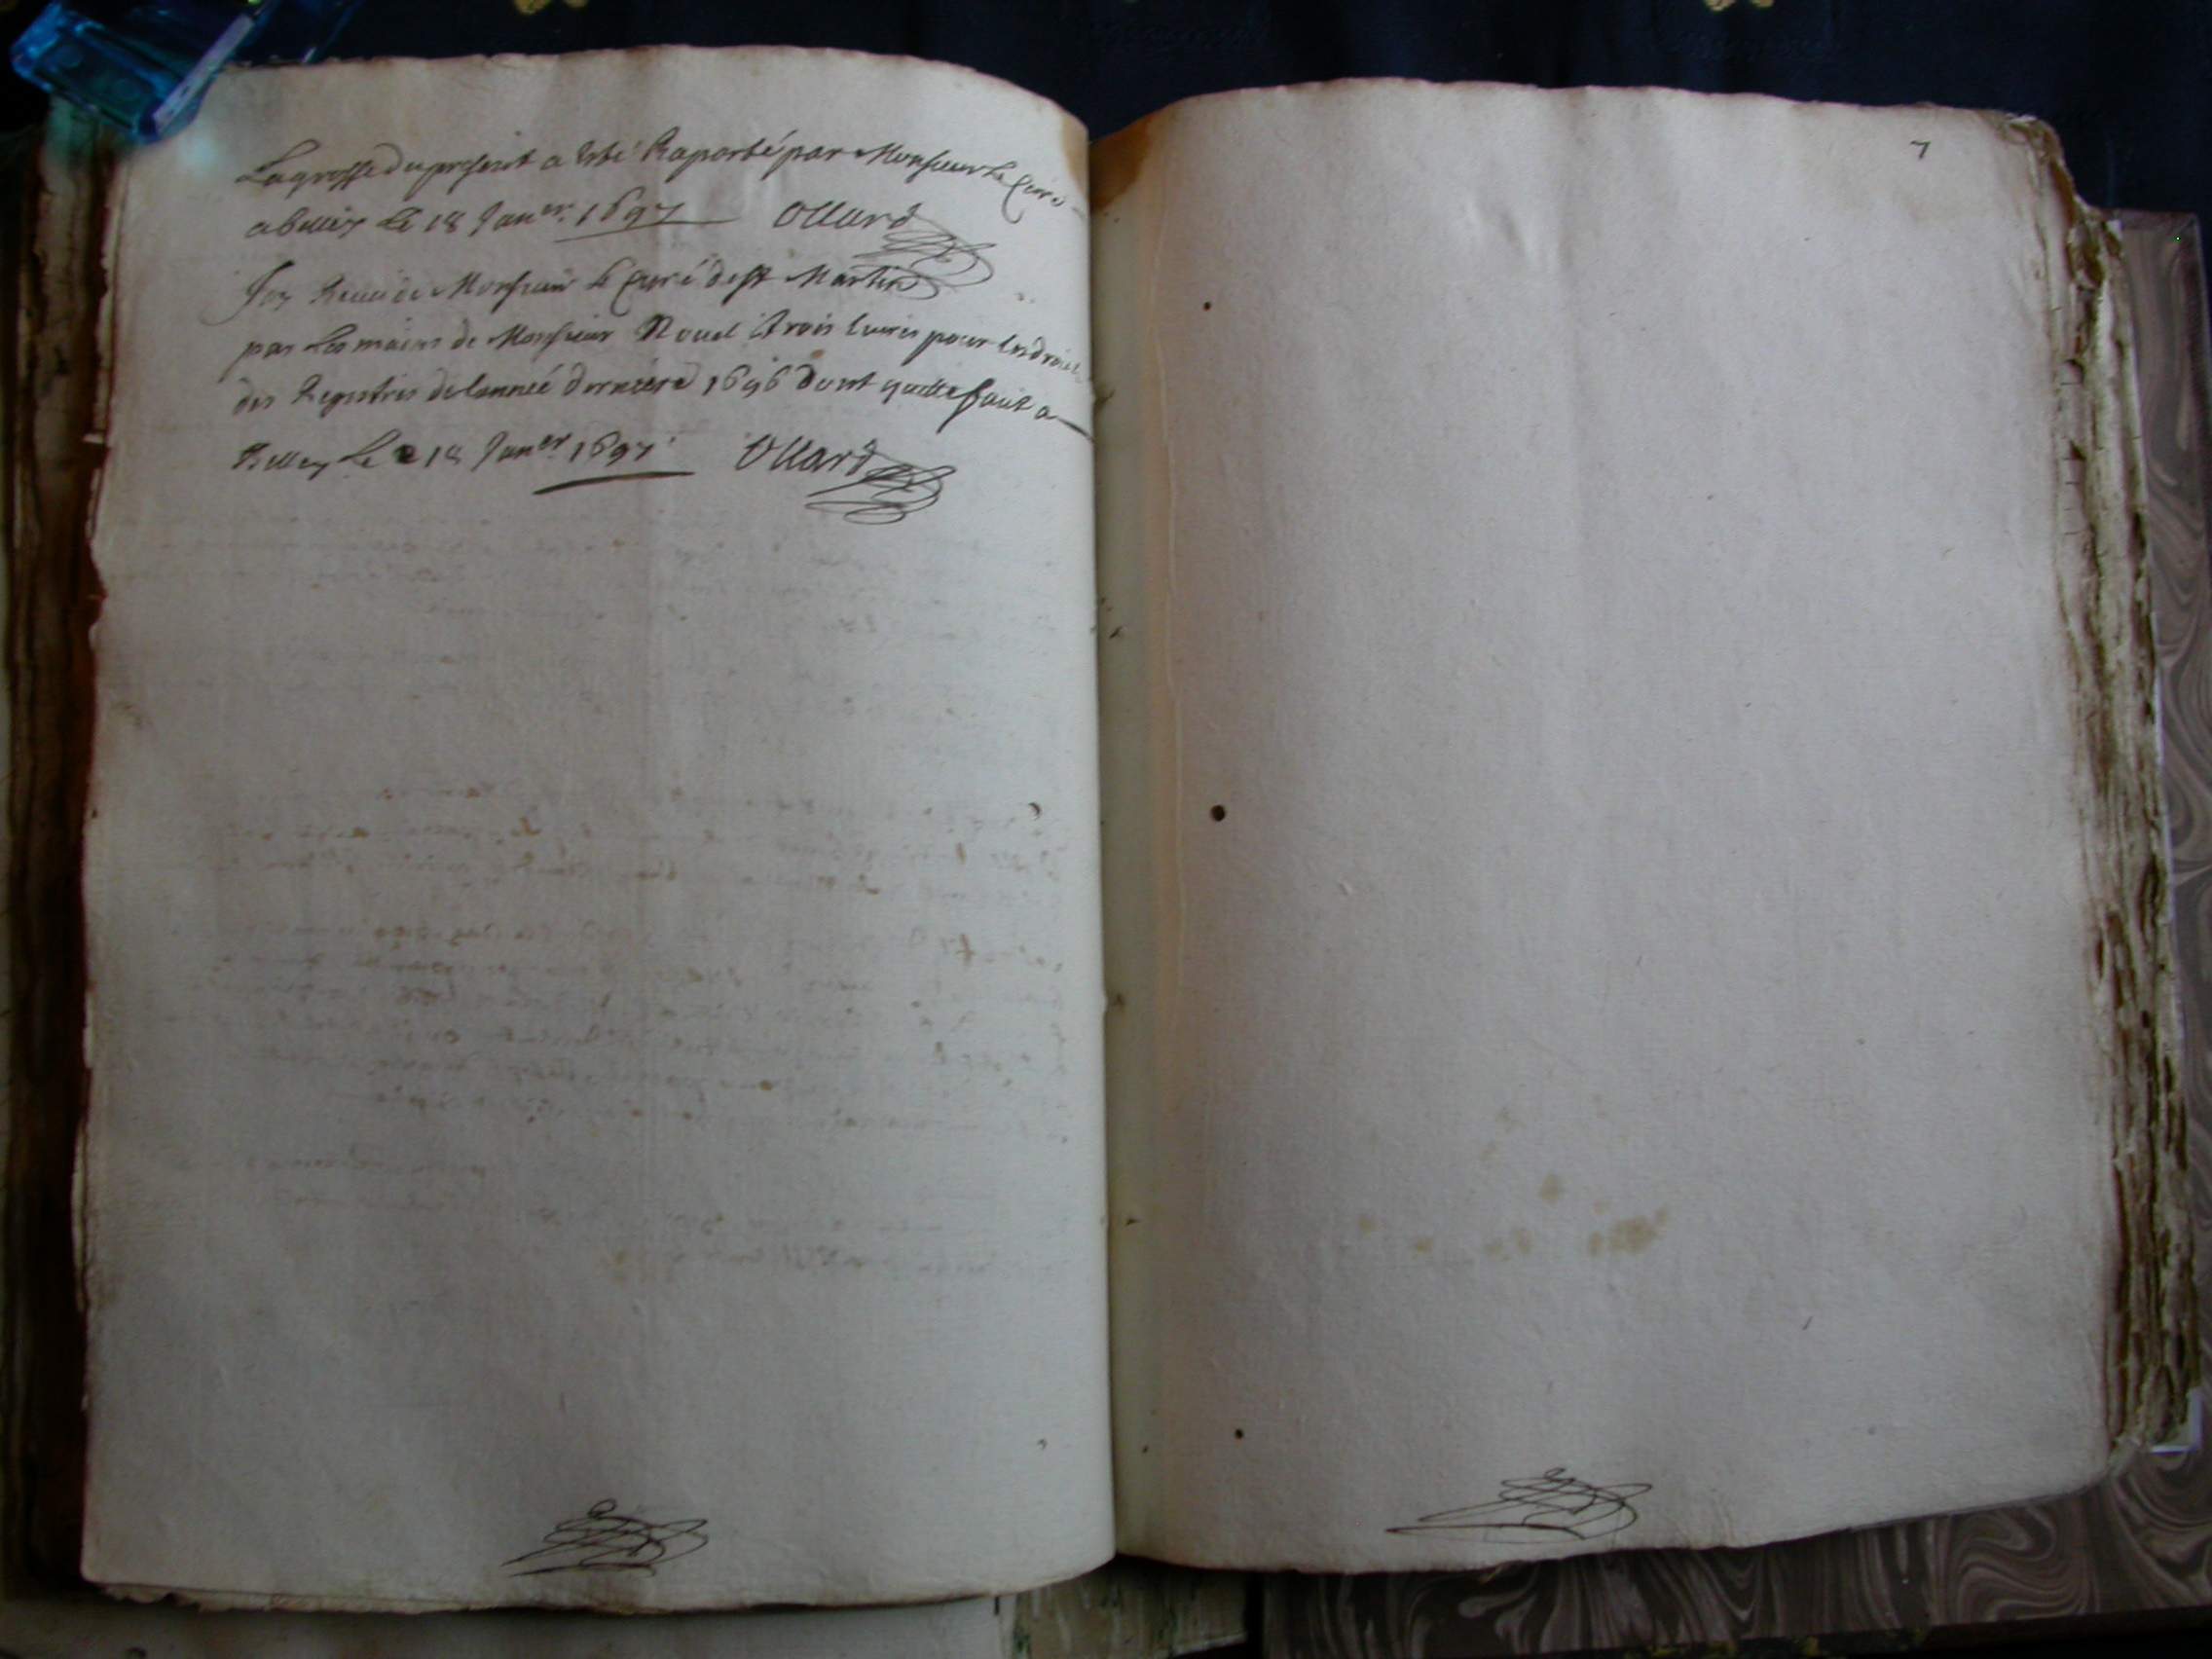 La grosse du present a Esté Raporté par Monsieur Le Curé
a belley Le 18 Jan.er 1697 Ollard
J'ay Receu de Monsieur le Curé de St Martin
par Les mains de Monsieur Nouel trois livres pour les droits
des Registres de lannée derniere 1696 dont quitte fait a
Belley Le 18 Jan.er 1697 Ollard
7